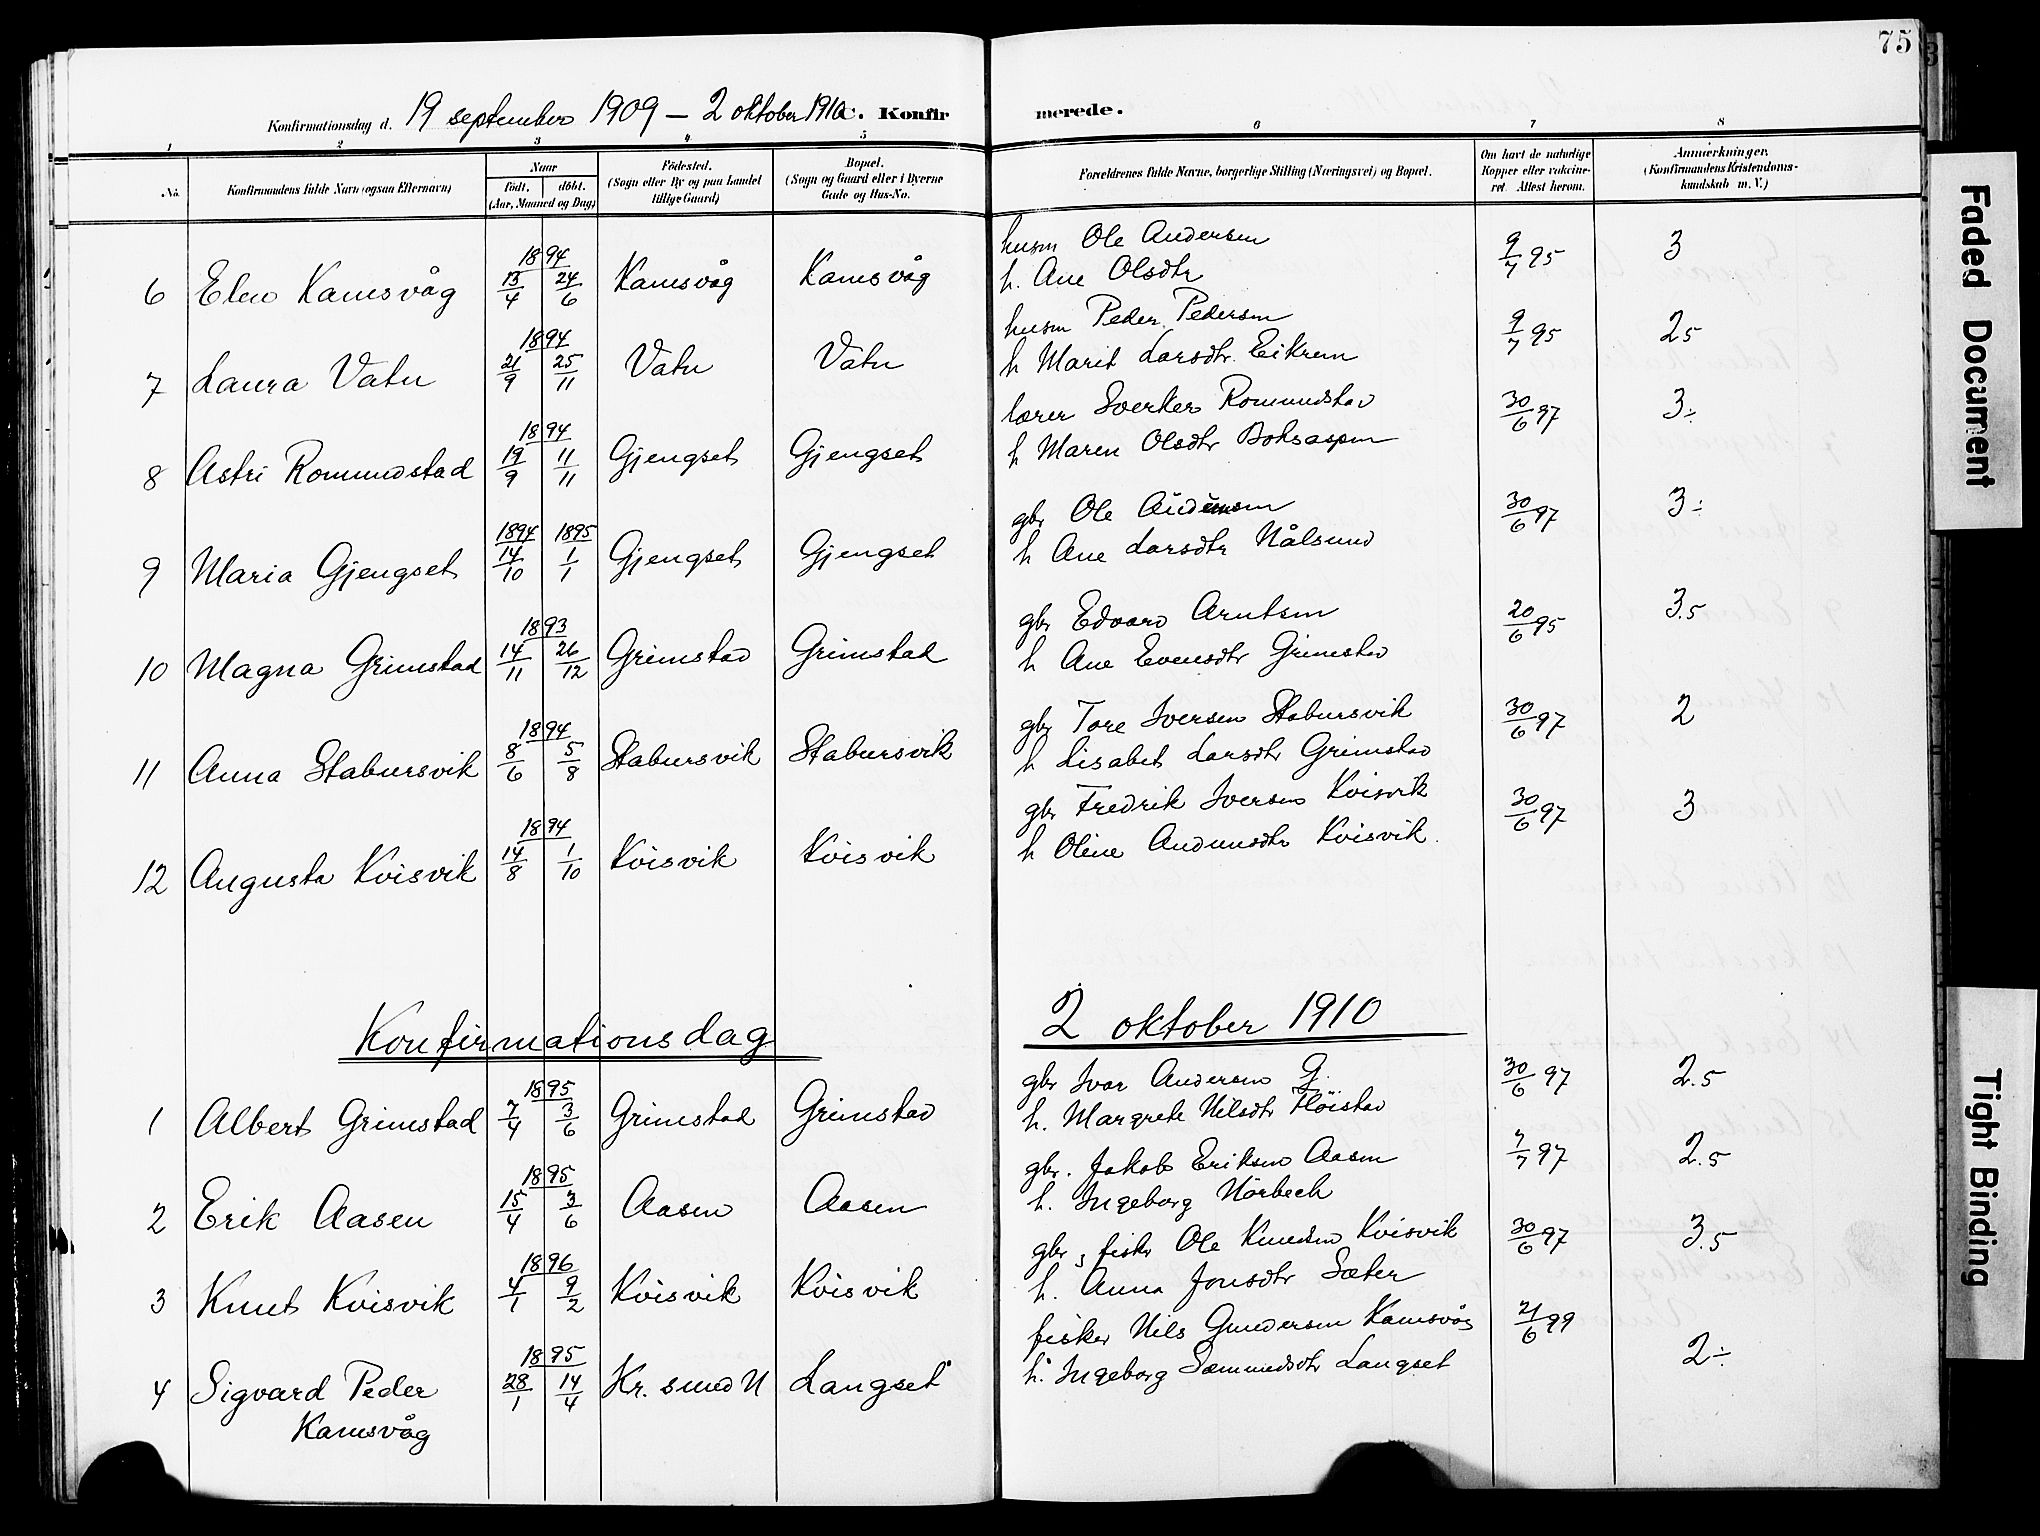 75
Konfirmationsdag d. 19 september 1909 – 2 oktober 1910 C. Konfirmerede.
1 2 3 4 5 6 7 8
No. Konfirmandens fulde Navn (ogsaa Efternavn) Naar födt. döbt. (Aar, Maaned og Dag) Födested. (Sogn eller By og paa Landet tillige Gaard) Bopæl. (Sogn og Gaard eller i Byerne Gade og Hus-No. Forældrenes fulde Navne, borgerlige Stilling (Næringsvei) og Bopæl. Om havt de naturlige Kopper eller vaccineret. Attest herom. Anmærkninger. (Konfirmandens Kristendomskundskab m. V.)
6 Elen Kamsvåg 1894 13/4 24/6 Kamsvåg Kamsvåg husm Ole Andersen 9/7 95 3
h. Ane Olsdtr
7 Laura Vatn 1894 21/9 25/11 Vatn Vatn husm Peder Pedersen 9/7 95 25
h Marit Larsdtr. Eikrem
8 Astri Romundstad 1894 19/9 11/11 Gjengset Gjengset lærer Sverker Romundstad 30/6 97 3÷
h Maren Olsdtr Boksaspen
9 Maria Gjengset 1894 14/10 1895 1/1 Gjengset Gjengset gbr Ole Audunsen 30/6 97 3÷
h Ane Larsdtr Nålsund
10 Magna Grimstad 1893 14/11 26/12 Grimstad Grimstad gbr Edvard Arntsen 20/6 95 3.5
h Ane Evensdtr Grimstad
11 Anna Stabursvik 1894 8/6 5/8 Stabursvik Stabursvik gbr Tore Iversen Stabursvik 30/6 97 2
h Lisabet Larsdtr Grimstad
12 Augusta Kvisvik 1894 14/8 1/10 Kvisvik Kvisvik gbr Fredrik Iversen Kvisvik 30/6 97 3
h Oline Audunsdtr Kvisvik.
Konfirmationsdag 2 oktober 1910
1 Albert Grimstad 1895 7/4 3/6 Grimstad Grimstad gbr Ivar Andersen G. 30/6 97 2.5
h. Margrete Nilsdtr Flöistad
2 Erik Aasen 1895 15/4 3/6 Aasen Aasen gbr. Jakob Eriksen Aasen 7/7 97 2.5
h. Ingeborg Nörbech
3 Knut Kvisvik 1896 4/1 9/2 Kvisvik Kvisvik gbr, fiskr Ole Knudsen Kvisvik 30/6 97 3.5
h. Anna Jonsdtr Sæter
4 Sigvard Peder 1895 28/1 14/4 Kr. sund N Langset fisker Nils Gundersen Kamsvåg 21/6 99 2÷
Kamsvåg h. Ingeborg Sæmundsdtr Langset
Faded Document
Tight Binding